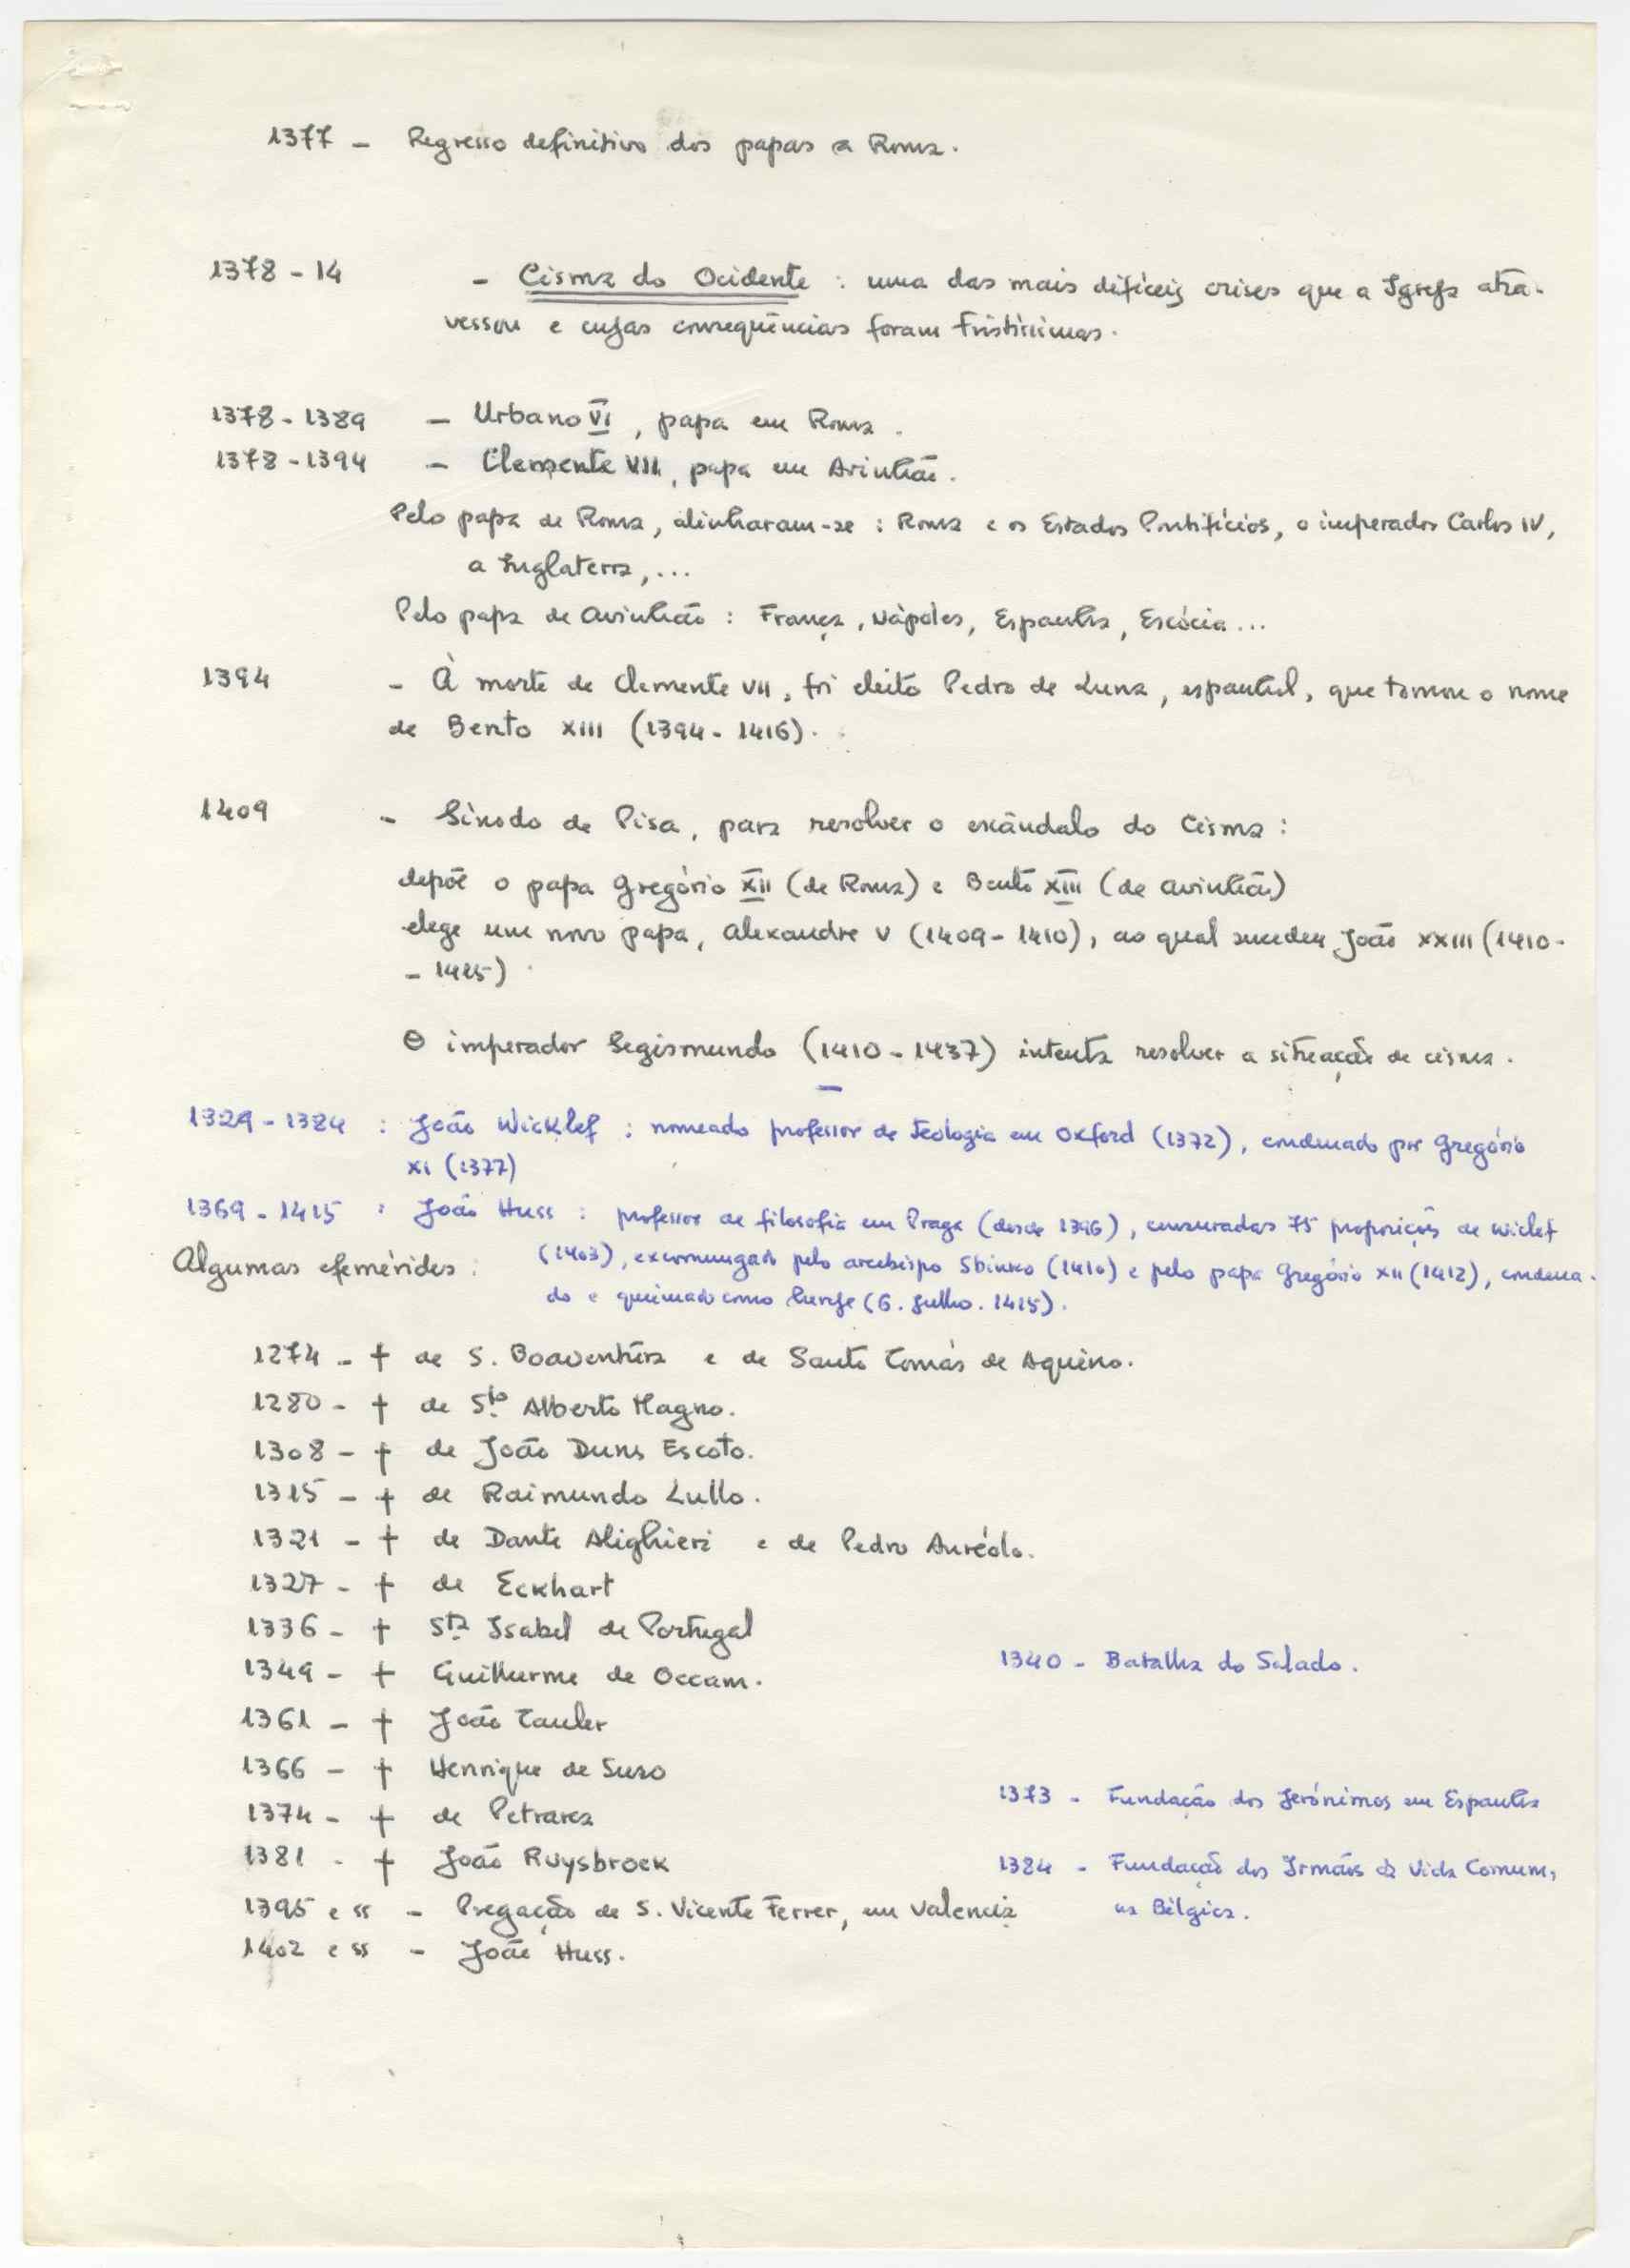 1377 - Regresso definitivo dos papas a Roma.
1378 - 14 - Cisma do Ocidente : uma das mais difíceis crises que a Igreja atra-
vessou e cujas consequências foram tristíssimas.
1378 - 1389 - Urbano VI, papa em Roma.
1378 - 1394 - Clemente VII, papa em Avinhão.
Pelo papa de Roma, alinharam-se : Roma e os Estados Pontifícios, o imperador Carlos IV,
a Inglaterra, ...
Pelo papa de Avinhão : França, Nápoles, Espanha, Escócia ...
1394 - À morte de Clemente VII, foi eleito Pedro de Luna, espanhol, que tomou o nome
de Bento XIII (1394 - 1416).
1409 - Sínodo de Pisa, para resolver o escândalo do Cisma :
depõe o papa Gregório XII (de Roma) e Bento XIII (de Avinhão)
elege um novo papa, Alexandre V (1409 - 1410), ao qual sucedeu João XXIII (1410-
- 1415)
O imperador Segismundo (1410 - 1437) intenta resolver a situação de cisma.
1329 - 1384 : João Wicklef : nomeado professor de Teologia em Oxford (1372), condenado por Gregório
XI (1377)
1369 - 1415 : João Huss : professor de filosofia em Praga (desde 1396), censuradas 75 proposições de Wiclef
(1403), excomungado pelo arcebispo Sbinko (1410) e pelo papa Gregório XII (1412), condena-
do e queimado como herege (6. Julho. 1415).
Algumas efemérides :
1274 - † de S. Boaventura e de Santo Tomás de Aquino.
1280 - † de Sto. Alberto Magno.
1308 - † de João Duns Escoto.
1315 - † de Raimundo Lullo.
1321 - † de Dante Alighieri e de Pedro Auréolo.
1327 - † de Eckhart
1336 - † Sta. Isabel de Portugal
1340 - Batalha do Salado.
1349 - † Guilherme de Occam.
1361 - † João Tauler
1366 - † Henrique de Suso
1373 - Fundação dos Jerónimos em Espanha
1374 - † de Petrarca
1381 - † João Ruysbroek
1384 - Fundação dos Irmãos da Vida Comum,
na Bélgica.
1395 e ss - Pregação de S. Vicente Ferrer, em Valencia
1402 e ss - João Huss.